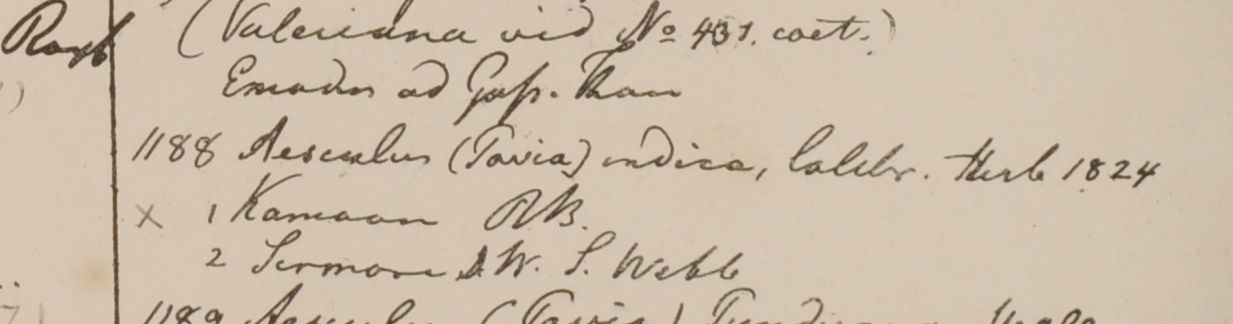 Roxb (Valeriana vid No 431. cæt.)
Emodus ad Gossain Than
1188 Aesculus (Pavia) indica, Colebr. Herb 1824
x 1 Kamaon RB.
2 Sirmore W. S. Webb
1189 Aesculus (Pavia) Wall